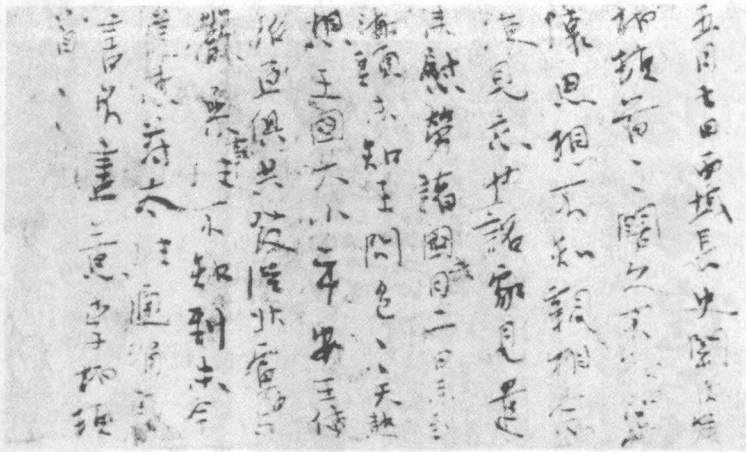 五月七日西域長史關內侯
柏頓首ゝ闊久不知問常
懷思想不知親相念
便見忘也詔家見遣
來慰勞諸國此月二日來到
海頭未知王問邑ゝ天熱
想王國大小平安王使
招亘俱共發從北虜中
與嚴參事往不知到未今
遣使苻大往通消息
書不盡意李柏頓
首ゝ